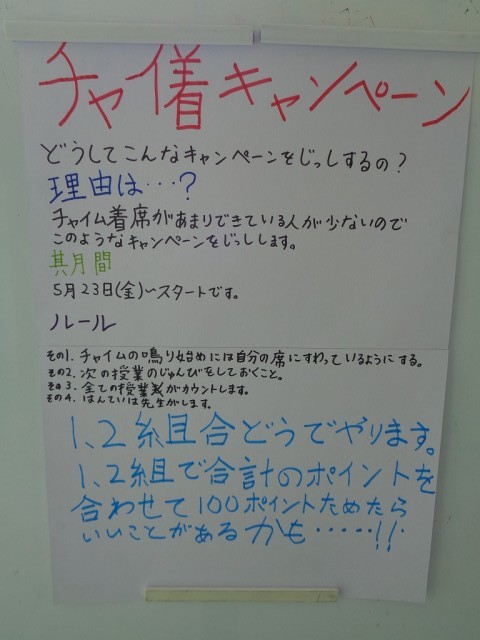 チャイ着キャンペーン
どうしてこんなキャンペーンをじっしするの？
理由は…？
チャイム着席があまりできている人が少ないので
このようなキャンペーンをじっしします。
其月間
5月23日(金)～スタートです。
ルール
その1. チャイムの鳴り始めには自分の席にすわっているようにする。
その2. 次の授業のじゅんびをしておくこと。
その3. 全ての授業がカウントします。
その4. はんていは先生がします。
1、2組合どうでやります。
1、2組で合計のポイントを
合わせて100ポイントためたら
いいことがあるかも……!!